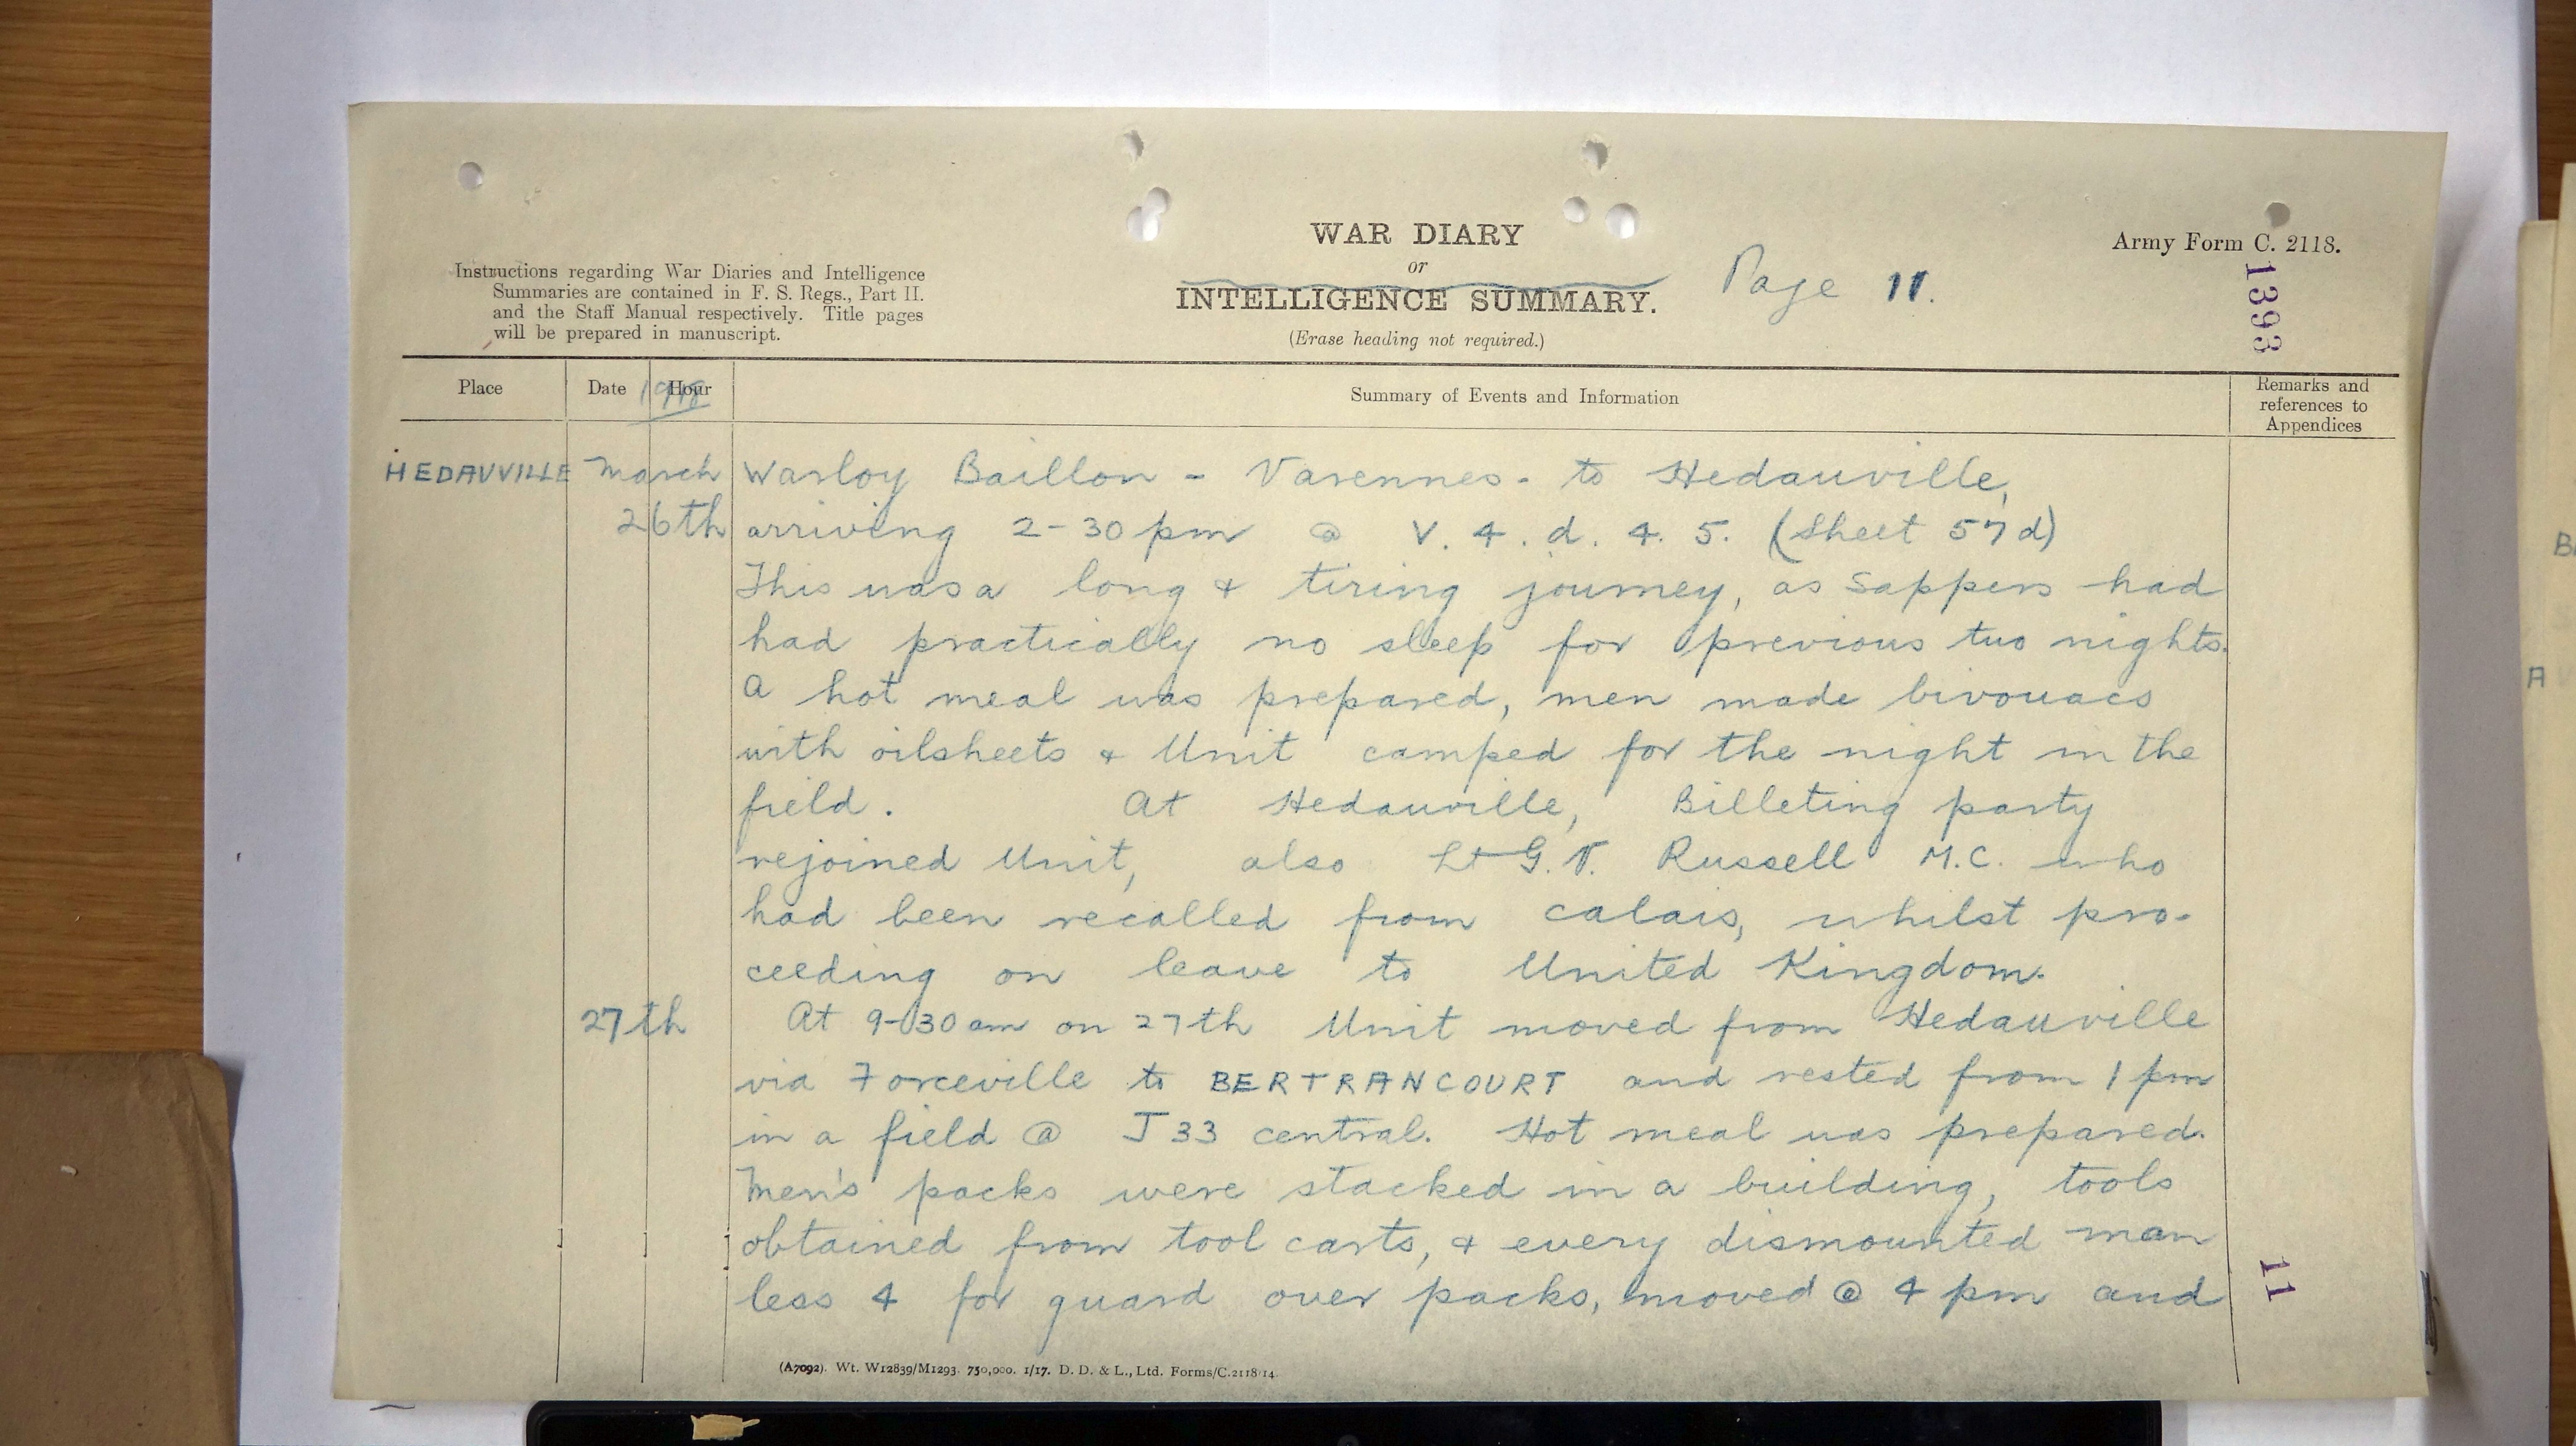 WAR DIARY
or
INTELLIGENCE SUMMARY.
(Erase heading not required.)
Page 11.
Army Form C. 2118.
1393
Instructions regarding War Diaries and Intelligence
Summaries are contained in F. S. Regs., Part II.
and the Staff Manual respectively. Title pages
will be prepared in manuscript.
Place Date 1918 Hour Summary of Events and Information Remarks and
references to
Appendices
HEDAUVILLE March Warloy Baillon - Varennes - to Hedauville,
26th arriving 2-30 pm @ V. 4. d. 4. 5. (Sheet 57d)
This was a long & tiring journey, as Sappers had
had practically no sleep for previous two nights.
A hot meal was prepared, men made bivouacs
with oilsheets & Unit camped for the night in the
field. At Hedauville, Billeting party
rejoined Unit, also Lt G.V. Russell M.C. who
had been recalled from Calais, whilst pro-
ceeding on leave to United Kingdom.
27th At 9-30 am on 27th Unit moved from Hedauville
via Forceville to BERTRANCOURT and rested from 1 pm
in a field @ J 33 central. Hot meal was prepared.
Men's packs were stacked in a building, tools
obtained from tool carts, & every dismounted man
less 4 for guard over packs, moved @ 4 pm and
11
(A7092). Wt. W12839/M1293. 750,000. 1/17. D. D. & L., Ltd. Forms/C.2118/14.
B
A